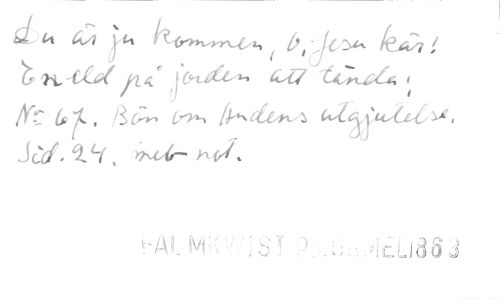 Du är ju kommen, O, Jesu kär!
En eld på jorden att tända;
No 67. Bön om Andens utgjutelse.
Sid. 24. med not.
PALMKWIST 1863